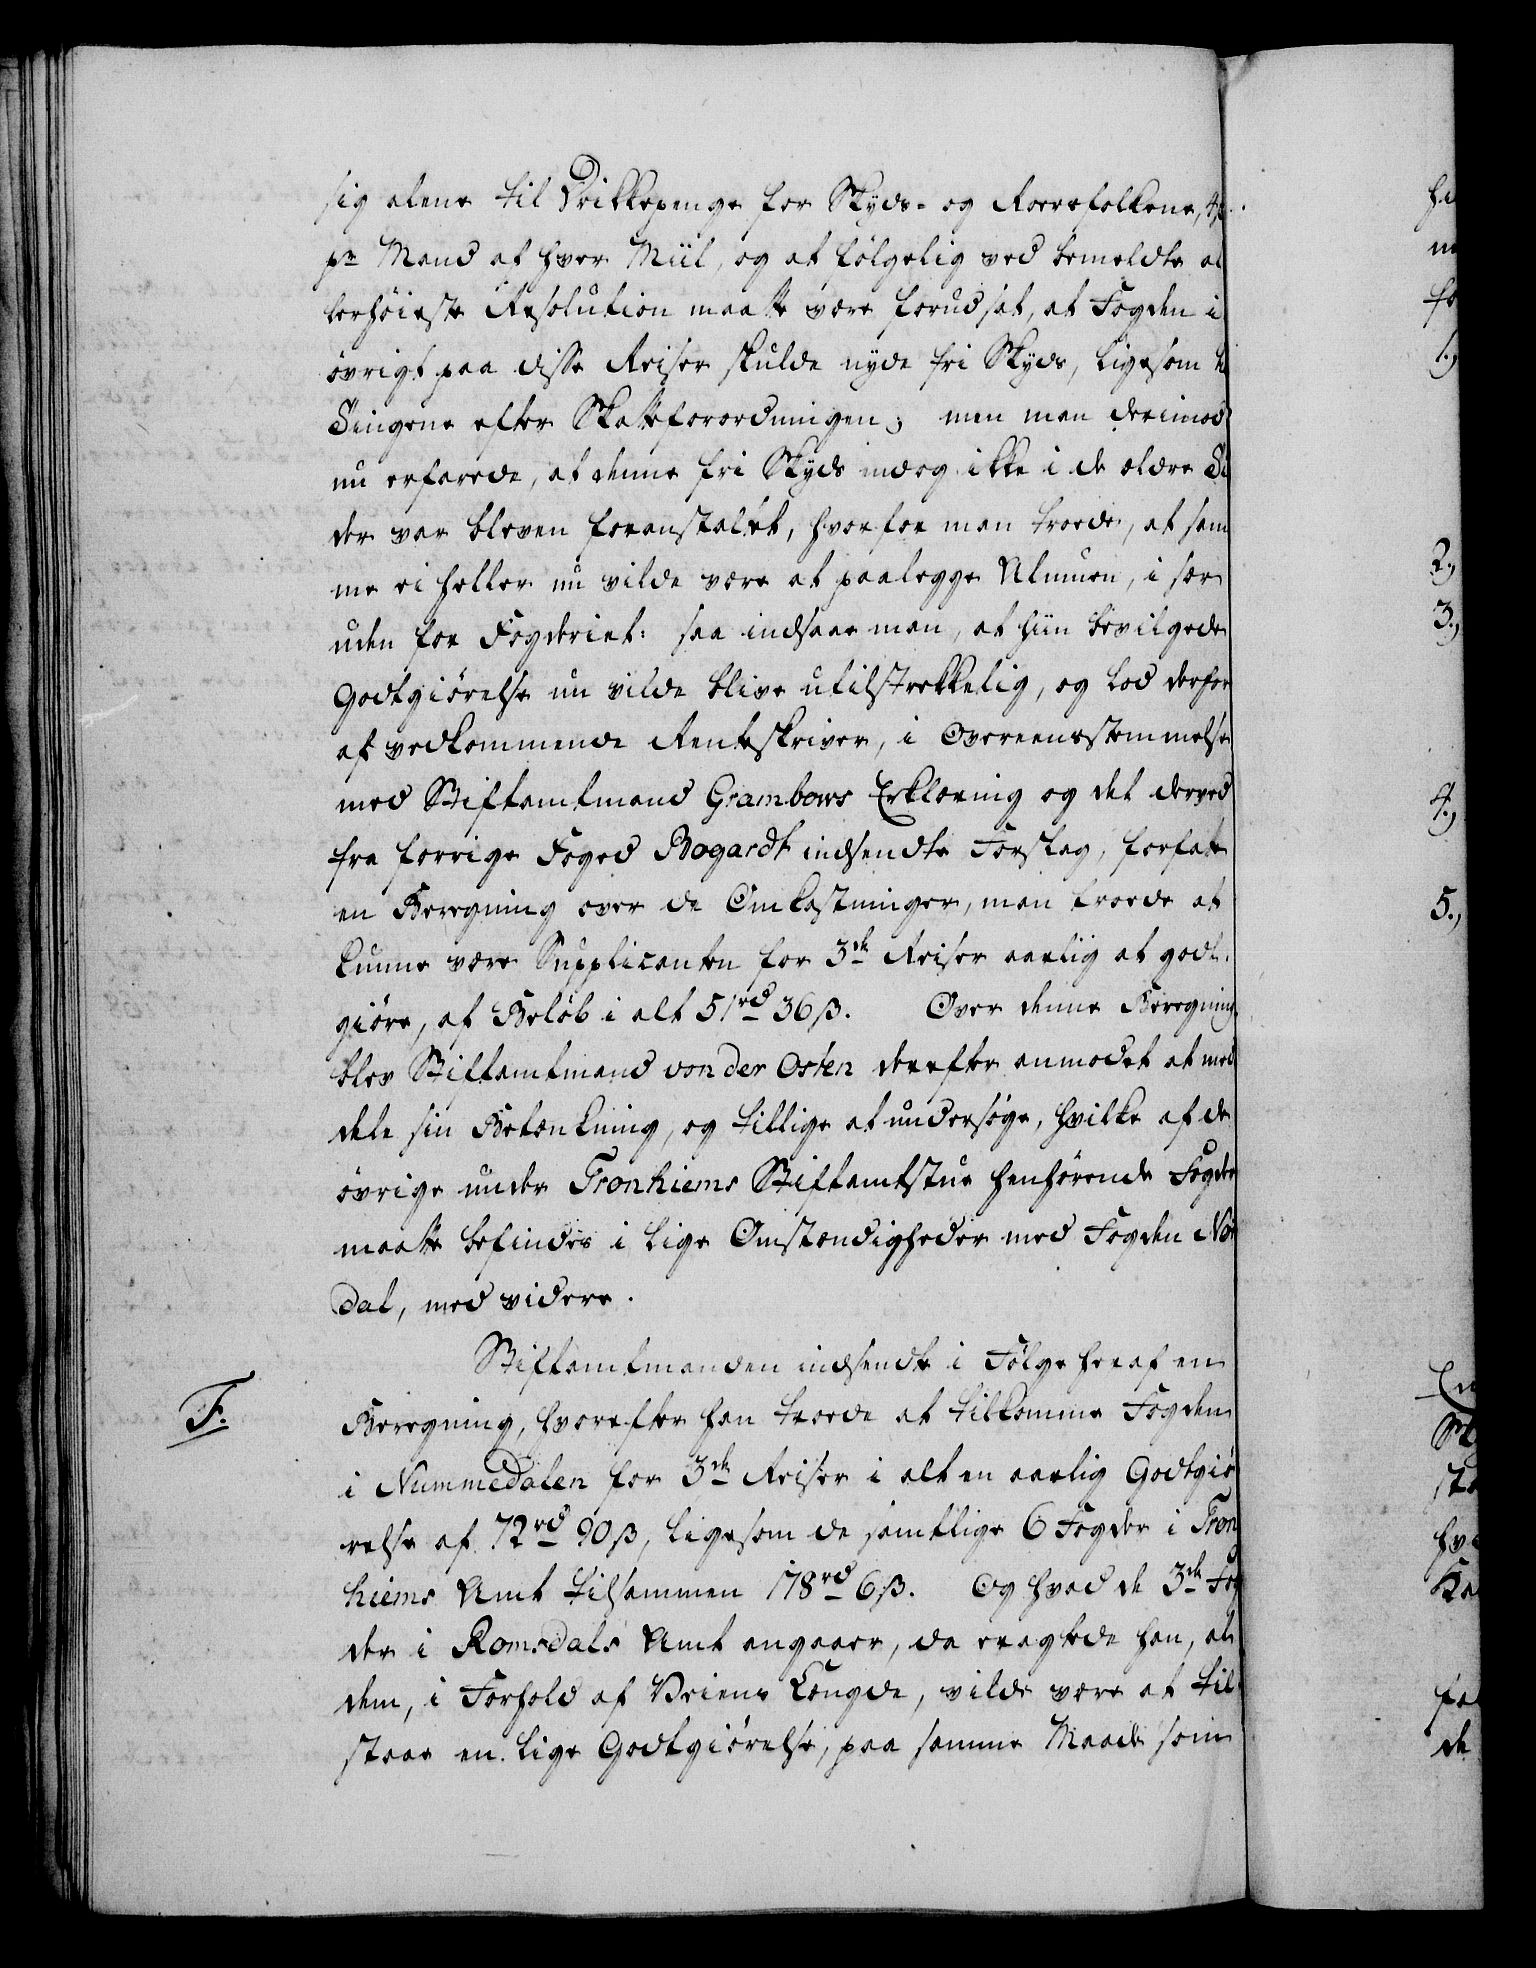 sig alene til Drikkepenge for Skyds- og Roersfolkene, 4 ß
pr Mand af hver Miil, og at følgelig ved bemeldte al
lerhöieste Resolution maatte være forudsat, at Fogden i
övrigt paa disse Reiser skulde nyde fri Skyds, ligesom til
Tingene efter Skatteforordningen; men man derimod
nu erfarede, at denne fri Skyds endog ikke i de ældre Ti
der var bleven foranstaltet, hvorfor man troede, at sam
me ei heller nu vilde være at paalegge Almuen, i sær
uden for Fogderiet: saa indsaae man, at hiin bevilgede
Godtgiörelse nu vilde blive utilstrekkelig, og lod derfor
af vedkommende Renteskriver, i Overeensstemmelse
med Stiftamtmand Grambows Erklæring og det derved
fra forrige Foged Bogardt indsendte Forslag, forfatte
en Beregning over de Omkostninger, man troede at
kunne være Supplicanten for 3de Reiser aarlig at godt-
giöre, af Belöb i alt 51 rd 36 ß. Over denne Beregning
blev Stiftamtmand von der Osten derefter anmodet at med
dele sin Betænkning, og tillige at undersöge, hvilke af de
övrige under Tronhiems Stiftamtstue henhörende Fogder
maatte befindes i lige Omstændigheder med Fogden Nor
dal, med videre.
Stiftamtmanden indsendte i Fölge heraf en
F.
Beregning, hvorefter han troede at tilkomme Fogden
i Nummedalen for 3de Reiser i alt en aarlig Godtgiö
relse af 72 rd 90 ß, ligesom de samtlige 6 Fogder i Tron
hiems Amt tilsammen 178 rd 6 ß. Og hvad de 3de Fog
der i Romsdals Amt angaaer, da eragtede han, at
dem, i Forhold af Veiens Længde, vilde være at til
staae en lige Godtgiörelse, paa samme Maade som
1.,
2.,
3.,
4.,
5.,